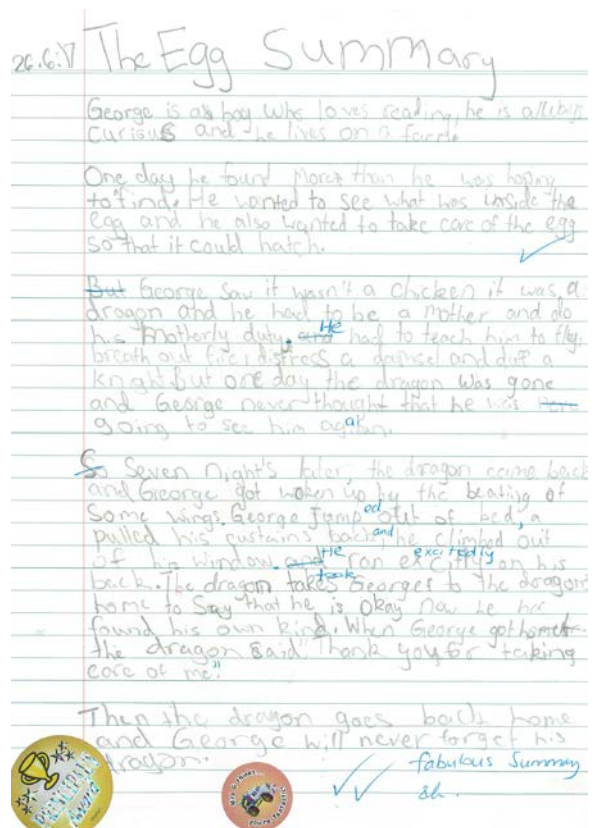 26.6.17 The Egg Summary
George is a boy who loves reading, he is always
curious and he lives on a farm.
One day he found more than he was hoping
to find. He wanted to see what was inside the
egg and he also wanted to take care of the egg
so that it could hatch.
But George saw it wasn't a chicken it was a
dragon and he had to be a mother and do
his Motherly duty. and He had to teach him to fly,
breath out fire, distress a damsel and a
knight. But one day the dragon was gone
and George never thought that he was
going to see him again.
So Seven night's later, the dragon came back
and George got woken up by the beating of
Some wings. George Jumped out of bed, a
pulled his curtains back, and he climbed out
of his window. and He ran excitedly on his
back. The dragon takes took Georges to the dragons
home to Say that he is okay now he has
found his own kind. When George got home
the dragon said "Thank you for taking
care of me."
Then the dragon goes back home
and George will never forget his
dragon.
fabulous Summary